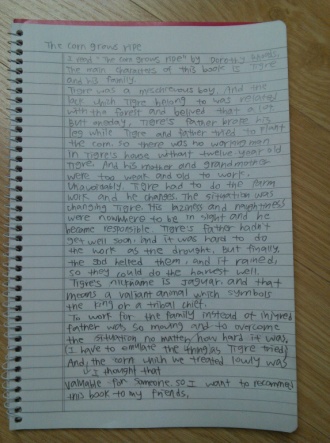 The corn grows ripe
I read "The corn grows ripe" by Dorothy Rhoads.
The main characters of this book is Tigre
and his family.
Tigre was a mischievous boy. And the
which Tigre belong to was related
with the forest and belived that a lot.
But oneday, Tigre's father broke his
leg while Tigre and father tried to plant
the corn. So there was no
in Tigre's house without twelve-year old
Tigre. And his mother and grandmother
were too weak and old to work.
Unavoidably, Tigre had to do the farm
work and he changes. The situation was
changing Tigre. His laziness and naughtiness
were nowhere to be in sight and he
became responsible. Tigre's father hadn't
get well soon. And it was hard to do
the work as the drought, but finally,
the god helped them, and it rained,
so they could do the harvest well.
Tigre's nickname is jaguar and that
means a valiant animal which symbols
the king or a tribal chief.
To work for the family instead of injured
father was so moving and to overcome
the situation no matter how hard it was.
(I have to emulate the things as Tigre tried)
And, the corn which we treated lowly was
I thought that
valuable for someone, so I want to recommend
this book to my friends.